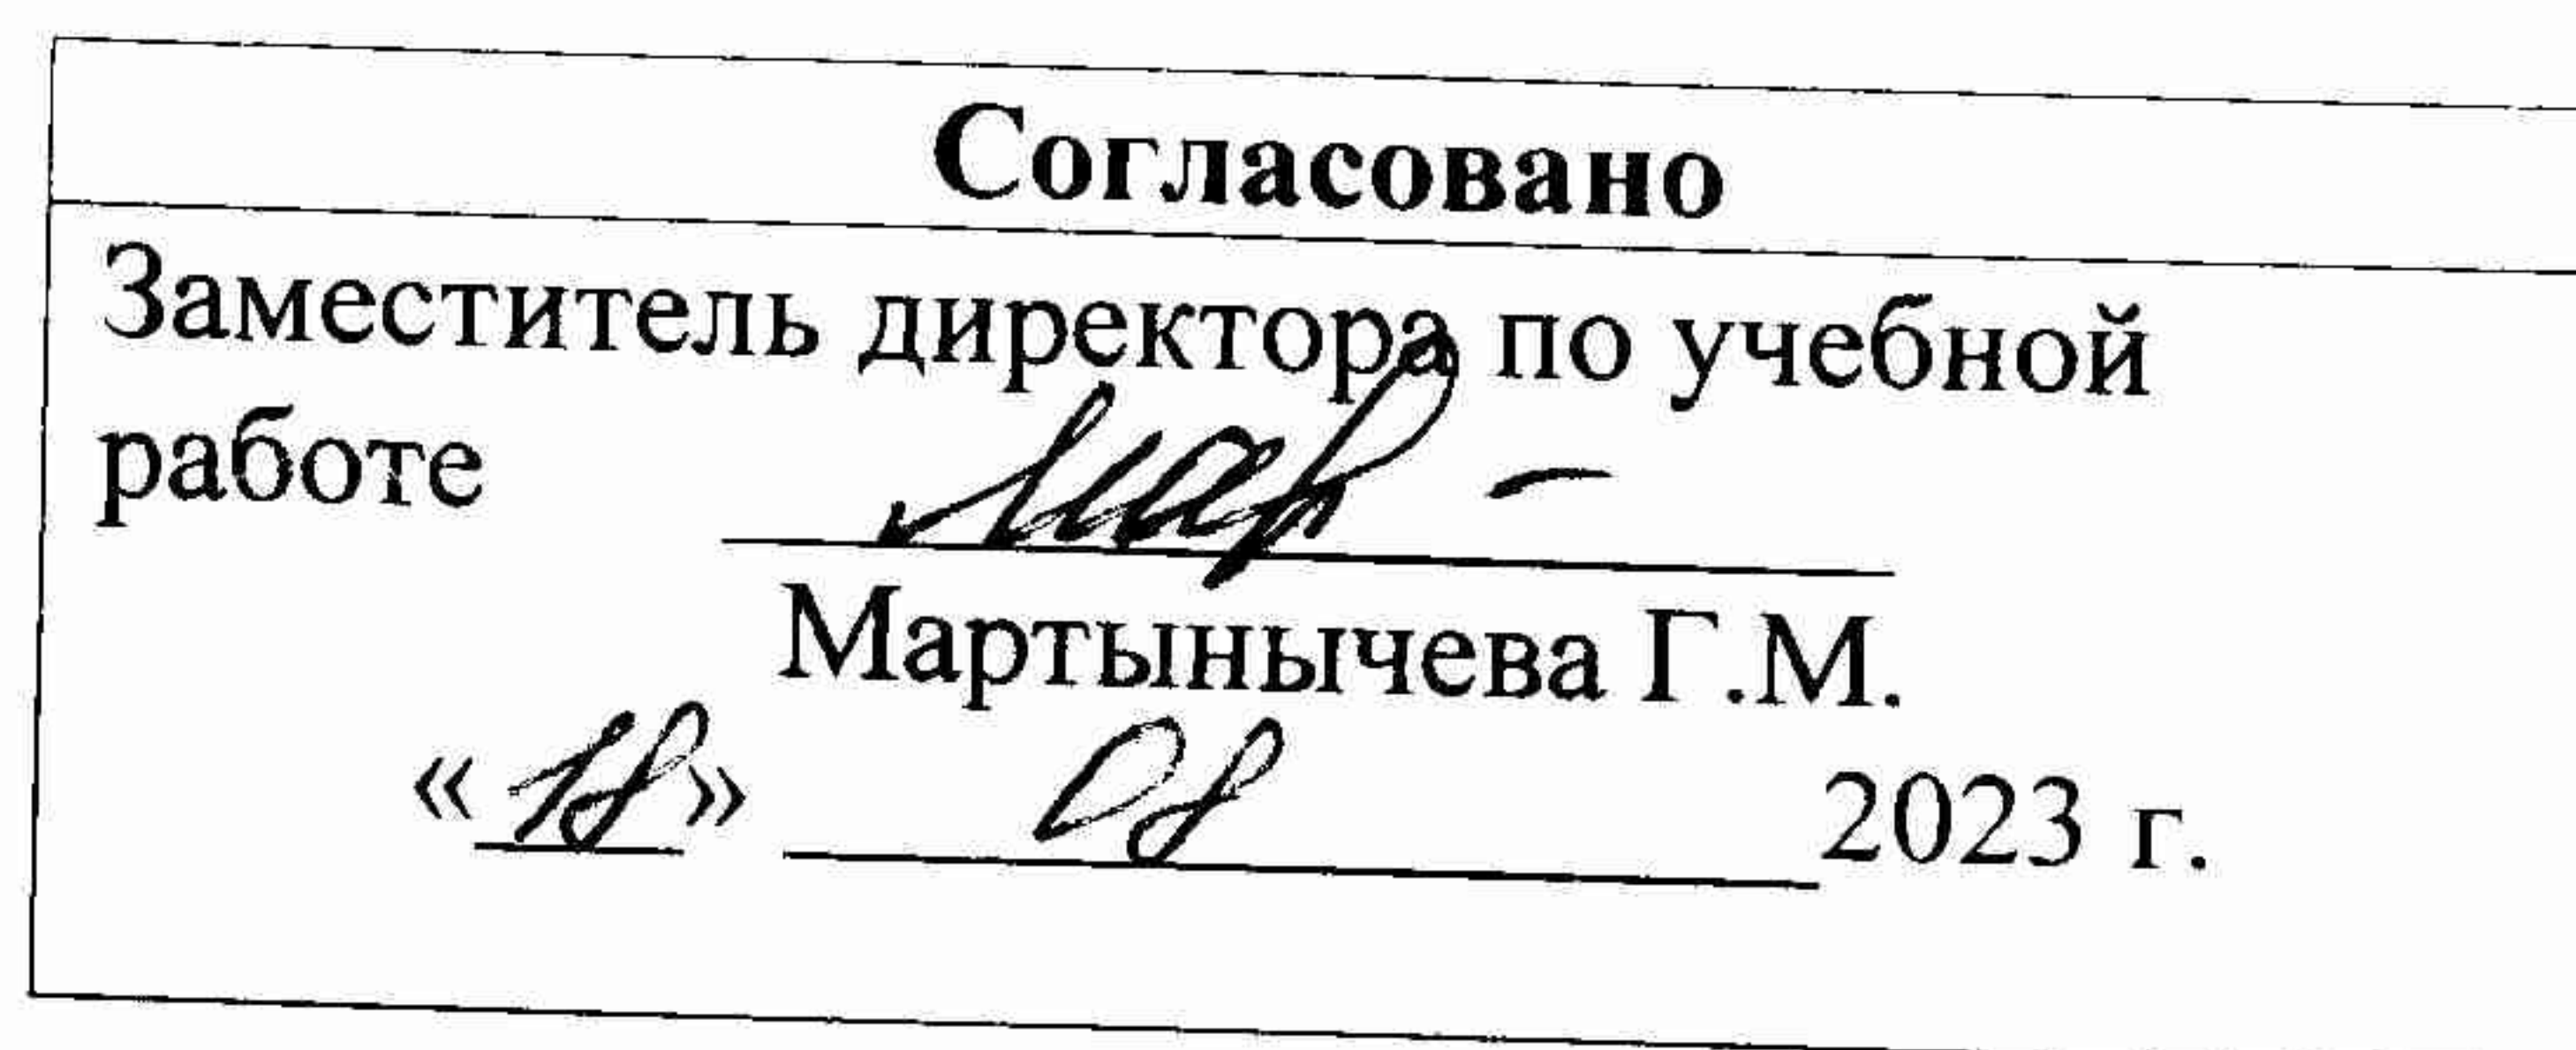 Согласовано
Заместитель директора по учебной
работе
Мартынычева Г.М.
«18» 08 2023 г.